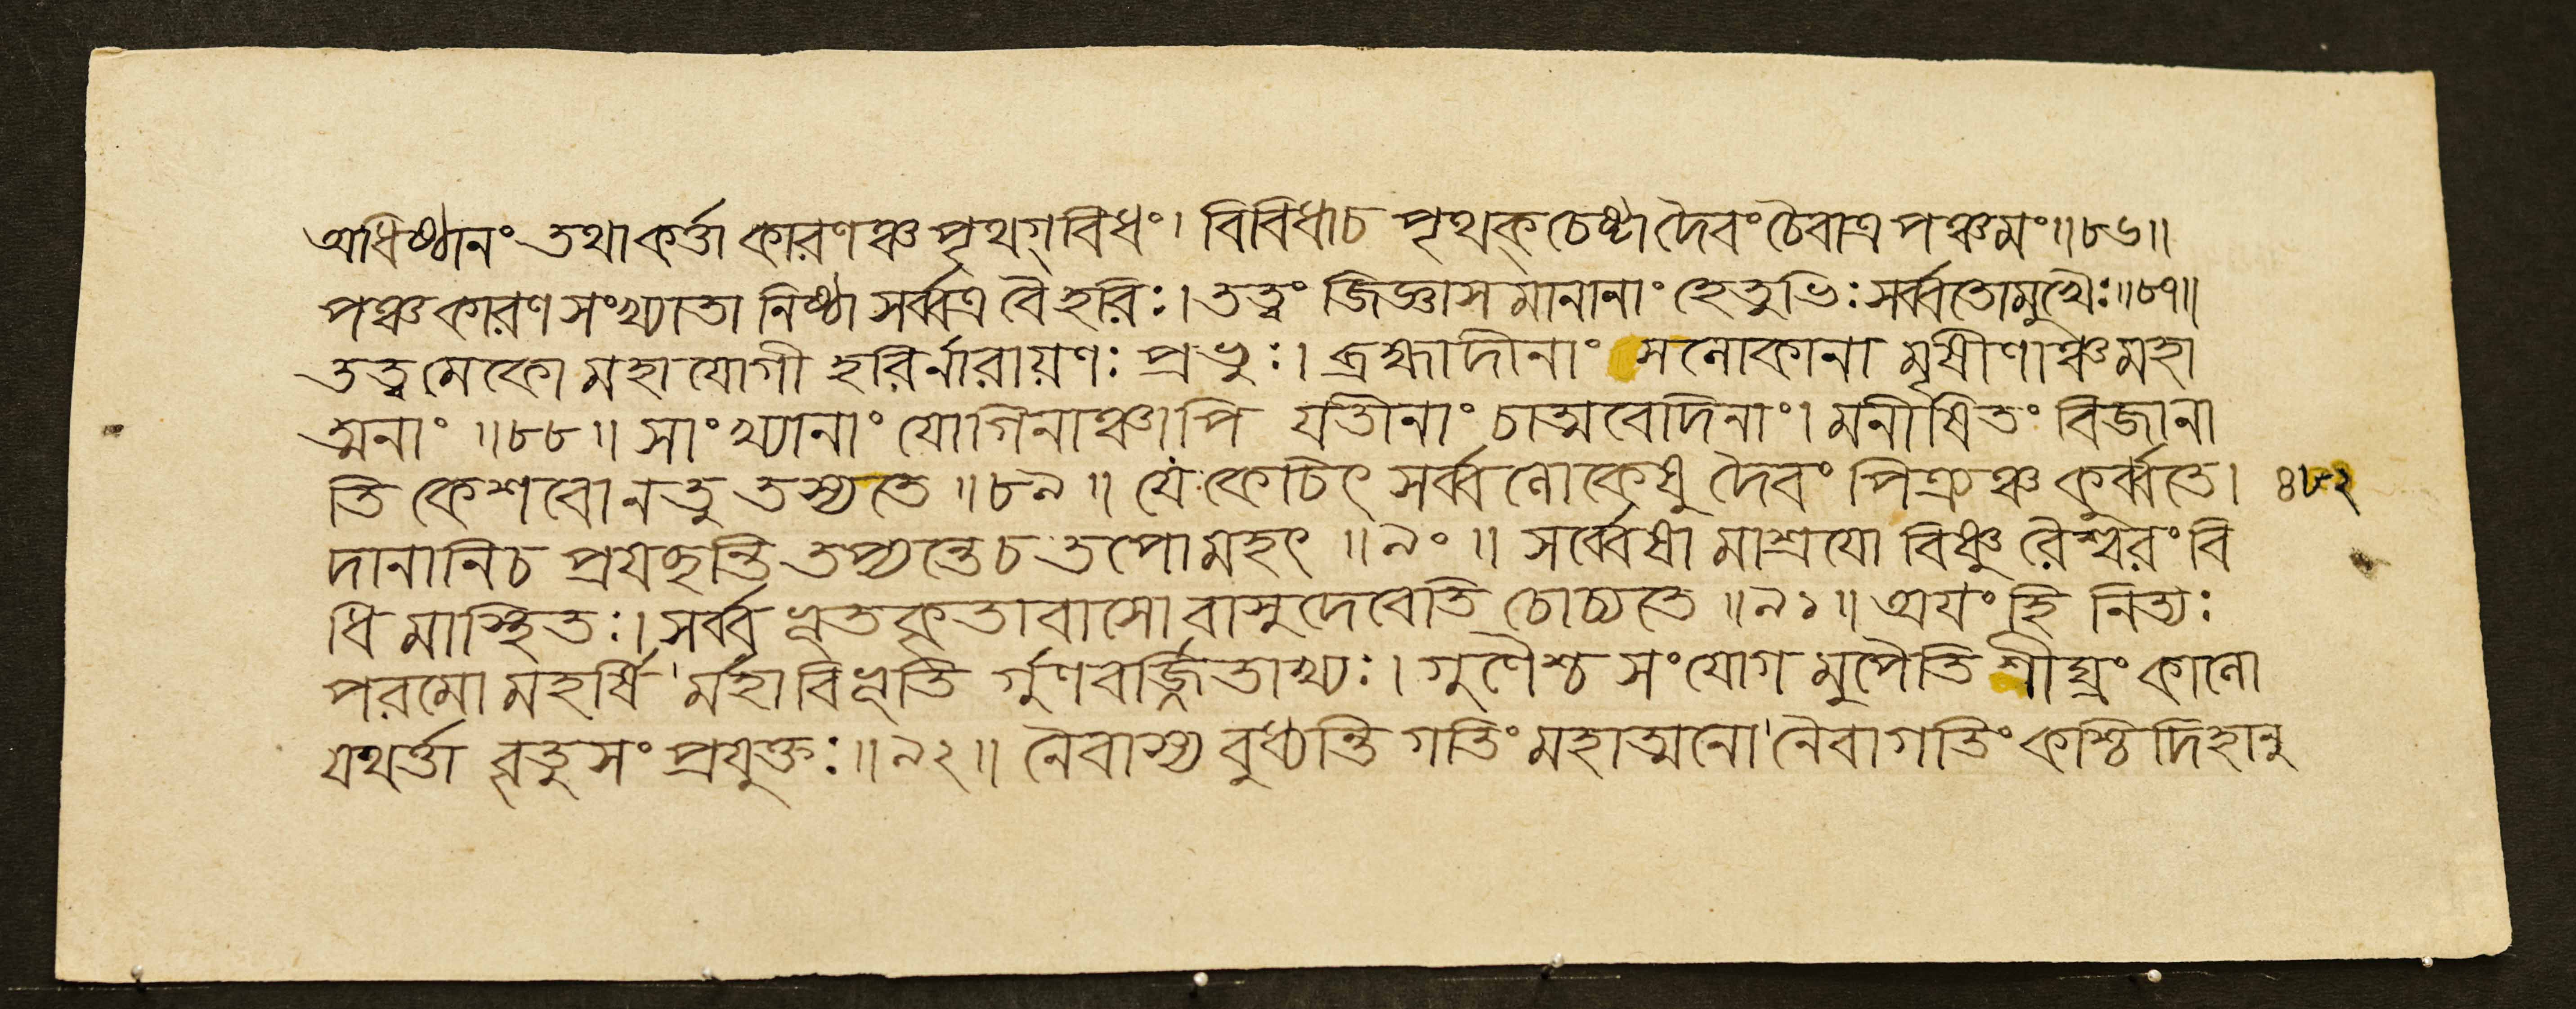 অধিষ্ঠানং তথাকর্ত্তা কারণঞ্চ পৃথগ্বিধং। বিবিধাচ পৃথক্ চেষ্টা দৈবং চৈবাত্র পঞ্চমং॥৮৬॥
পঞ্চকারণসংখ্যাতা নিষ্ঠা সর্ব্বত্র বৈ হরিঃ। তত্ত্বং জিজ্ঞাসমানানাং হেতুভিঃ সর্ব্বতোমুখৈঃ॥৮৭॥
তত্ত্বমেকো মহাযোগী হরির্নারায়ণঃ প্রভুঃ। ব্রহ্মাদীনাং সলোকানা মৃষীণাঞ্চ মহা
ত্মনাং ॥৮৮॥ সাংখ্যানাং যোগিনাঞ্চাপি যতীনাং চাত্মবেদিনাং। মনীষিতং বিজানা
তি কেশবো নতু তস্যতে ॥৮৯॥ যে কেচিৎ সর্ব্বলোকেষু দৈবং পিত্রঞ্চ কুর্ব্বতে। ৪৮২
দানানিচ প্রযচ্ছন্তি তপ্যন্তেচ তপোমহৎ ॥৯০॥ সর্ব্বেষা মাশ্রযো বিষ্ণু রৈশ্বরং বি
ধি মাস্থিতঃ। সর্ব্বভূতকৃতাবাসো বাসুদেবেতি চোচ্যতে ॥৯১॥ অযং হি নিত্যঃ
পরমো মহর্ষি র্মহাবিভূতি র্গুণবর্জ্জিতাখ্যঃ। গুণৈশ্চ সংযোগ মুপৈতি শীঘ্রং কালো
যথর্ত্তা বৃতুসংপ্রযুক্তঃ॥৯২॥ নৈবাস্য বুধ্যন্তি গতিং মহাত্মনো নৈবাগতিং কশ্চিদিহানু